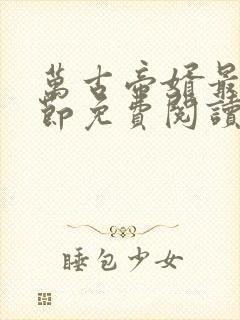 萬古帝婿最
節免費閱讀
睡包少女